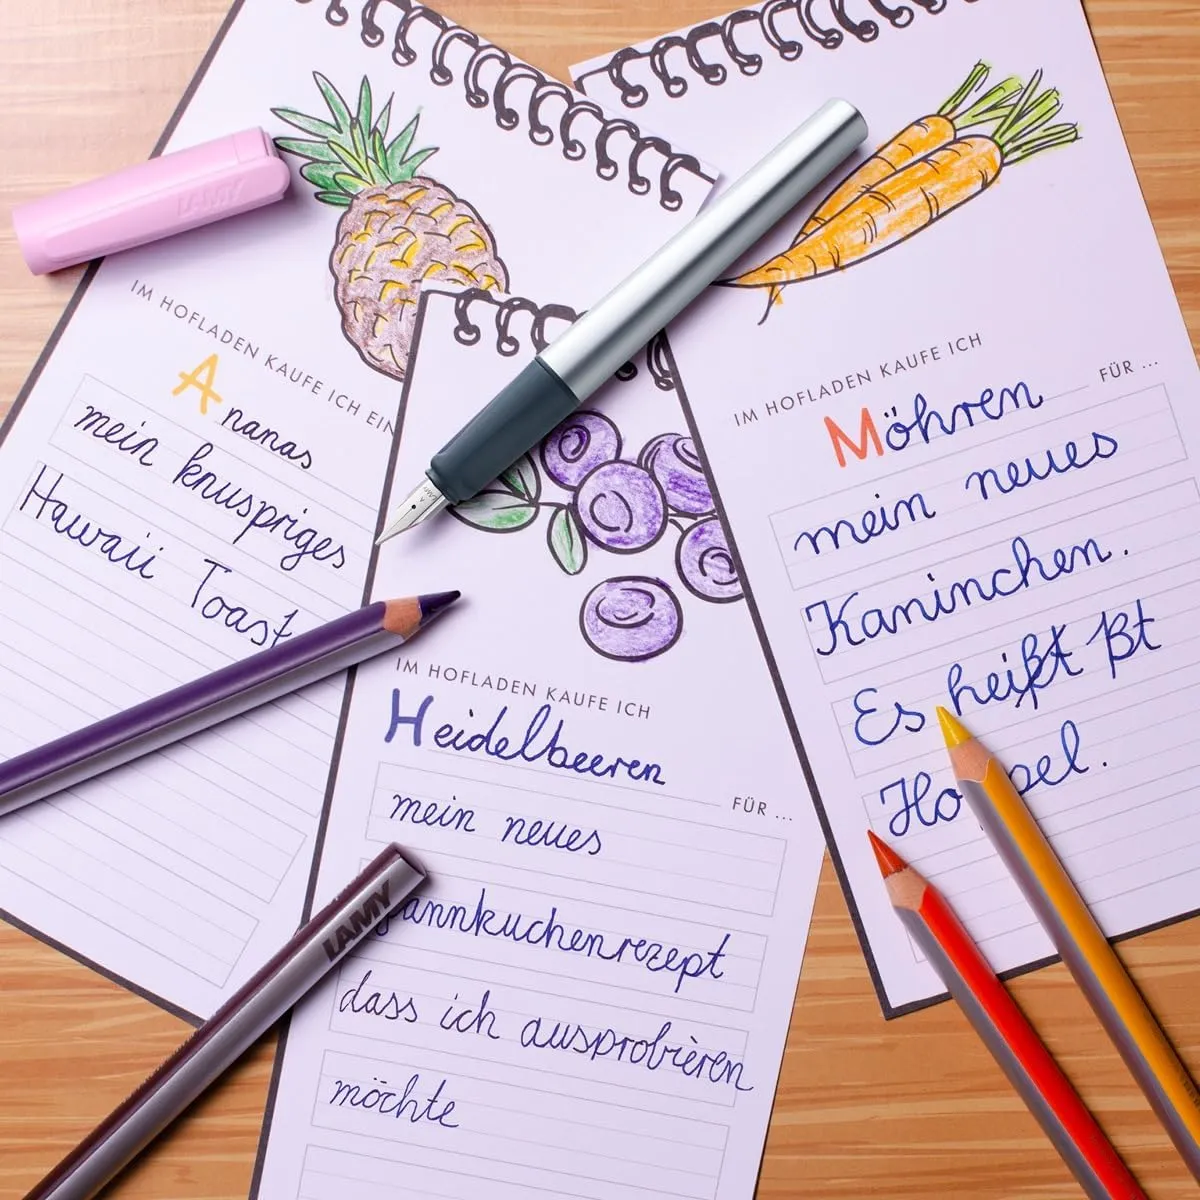 LAMY
IM HOFLADEN KAUFE ICH EIN
Ananas
mein knuspriges
Hawaii Toast
IM HOFLADEN KAUFE ICH
Heidelbeeren
FÜR ...
mein neues
annkuchenrezept
dass ich ausprobieren
möchte
IM HOFLADEN KAUFE ICH
FÜR ...
Möhren
mein neues
Kaninchen.
Es heißt ßt
Ho pel.
LAMY
LAMY